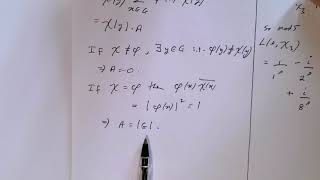 x∈G
= χ(y)·A
If χ ≠ φ, ∃ y∈G s.t. φ(y)≠χ(y)
⇒ A=0.
If χ=φ then φ(x) \overline{χ(x)}
= |φ(x)|² = 1
⇒ A=|G|.
χ₃
So mod 5
L(s, χ₂)